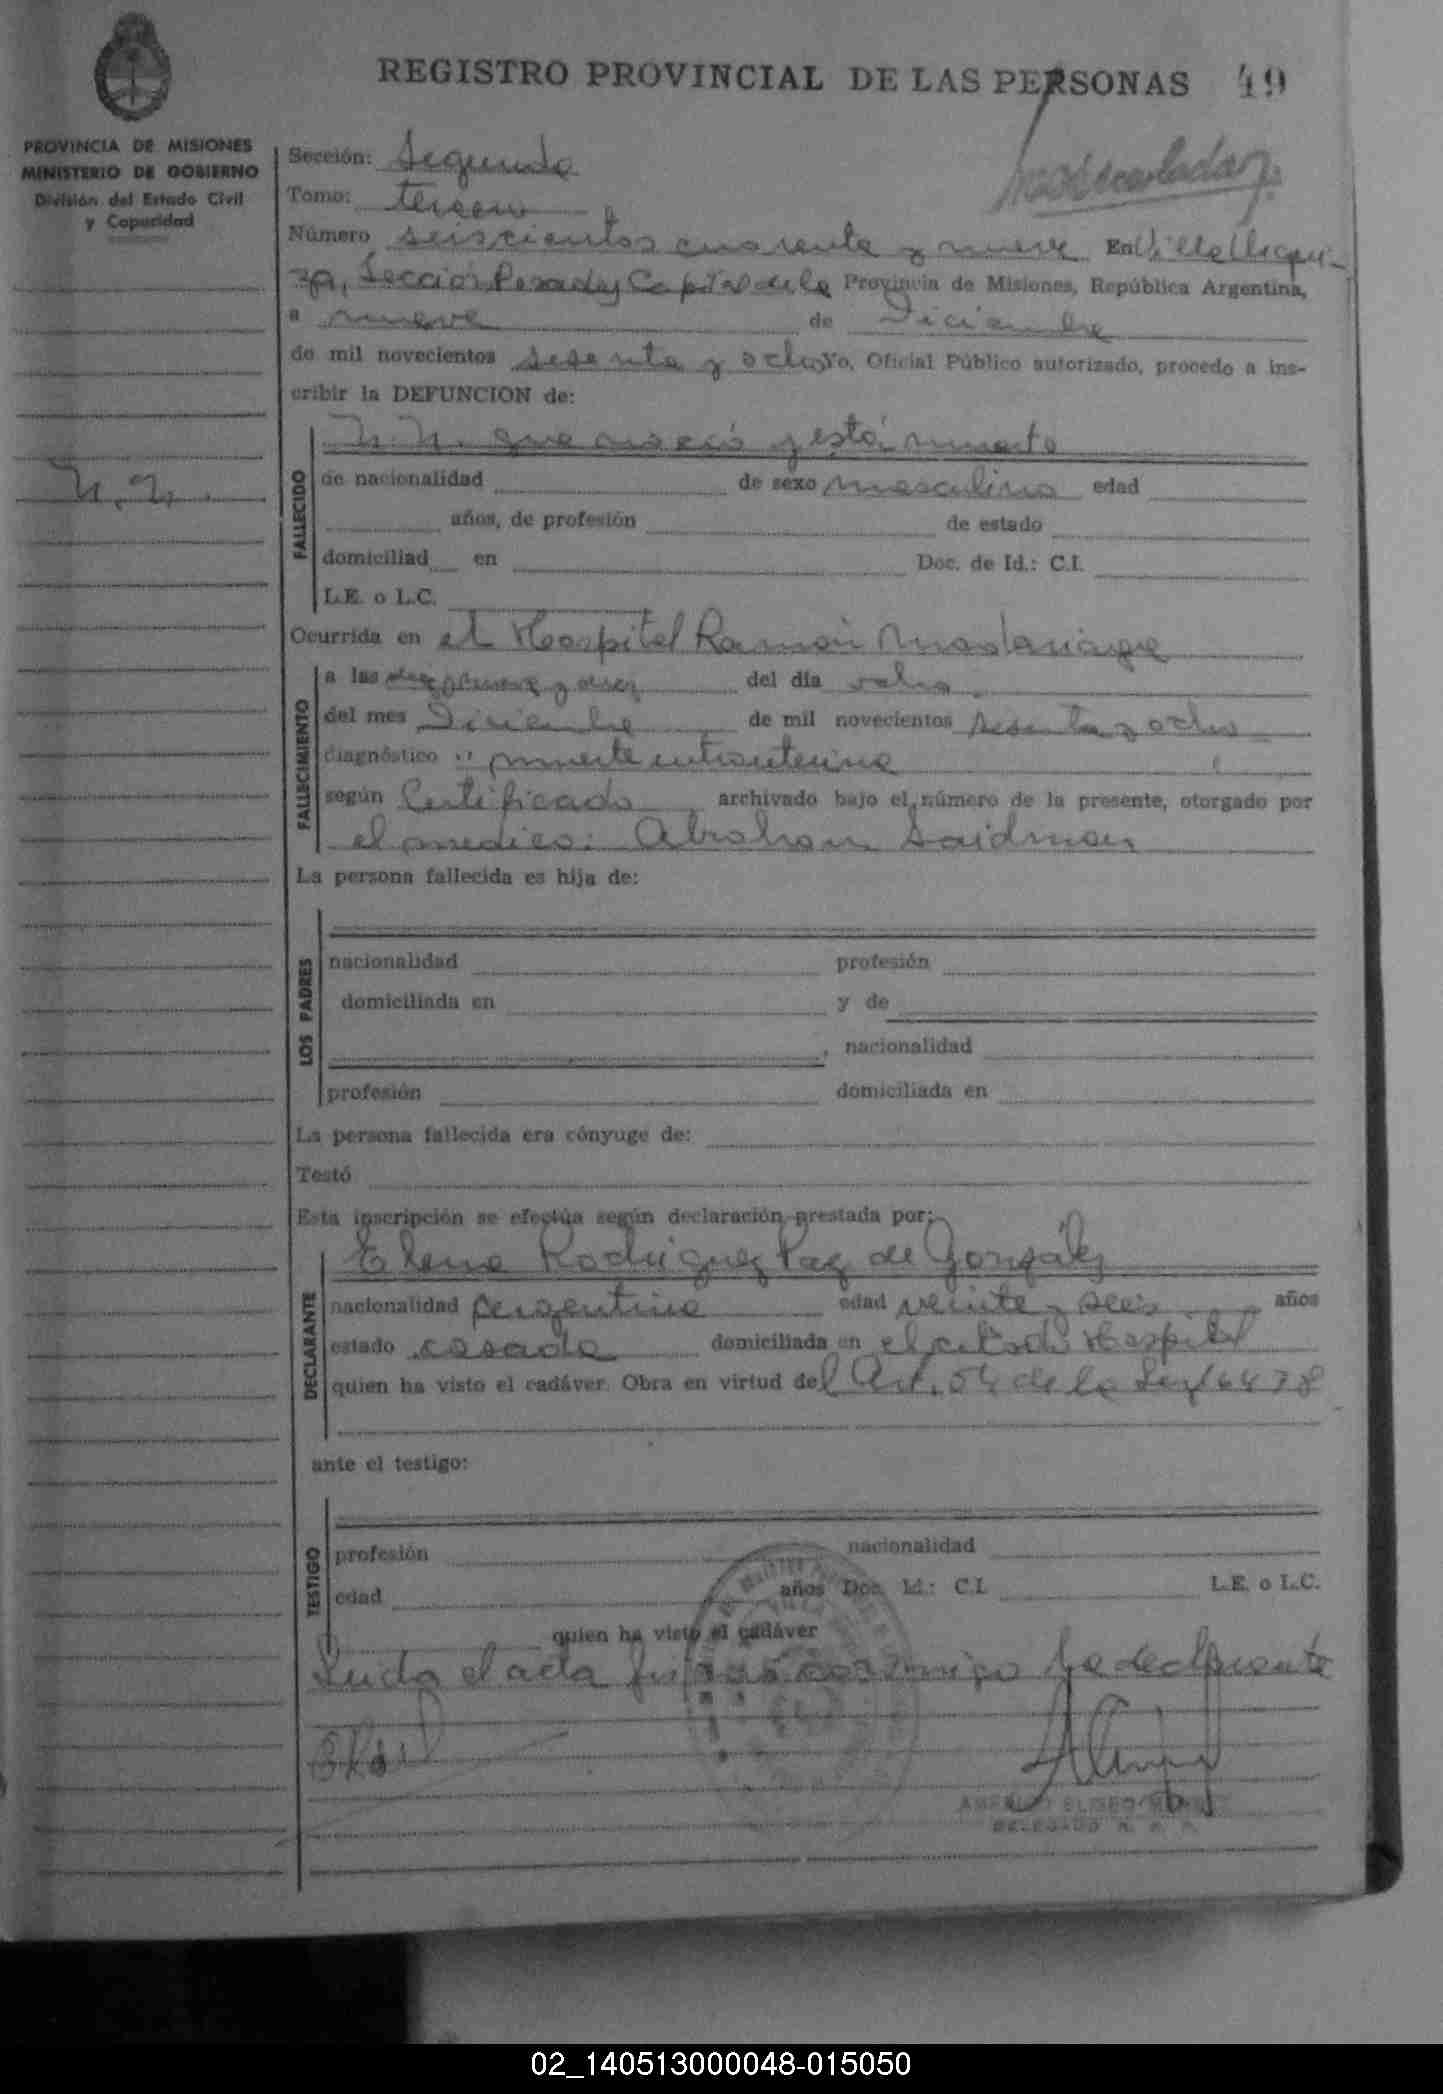 REGISTRO PROVINCIAL DE LAS PERSONAS 49
PROVINCIA DE MISIONES
MINISTERIO DE GOBIERNO
División del Estado Civil
y Capacidad
Sección: Segunda
Tomo: tercero
Número seiscientos cuarenta y nueve En Villa Urqui-
za, Sección Posadas Capital de la Provincia de Misiones, República Argentina,
a nueve de Diciembre
de mil novecientos sesenta y ocho Yo, Oficial Público autorizado, procedo a ins-
cribir la DEFUNCION de:
N.N. que nació y está muerto
N.N.
FALLECIDO
de nacionalidad de sexo masculino edad
años, de profesión de estado
domiciliad en Doc. de Id.: C.I.
L.E. o L.C.
Ocurrida en el Hospital Ramón Madariaga
FALLECIMIENTO
a las diez y nueve y diez del día ocho
del mes Diciembre de mil novecientos sesenta y ocho
diagnóstico "muerte intrauterina
según Certificado archivado bajo el número de la presente, otorgado por
el medico: Abraham Saidman
La persona fallecida es hija de:
LOS PADRES
nacionalidad profesión
domiciliada en y de
, nacionalidad
profesión domiciliada en
La persona fallecida era cónyuge de:
Testó
Esta inscripción se efectúa según declaración prestada por:
DECLARANTE
Elena Rodriguez Paz de González
nacionalidad Argentina edad veinte y seis años
estado casada domiciliada en el citado Hospital
quien ha visto el cadáver. Obra en virtud del Art. 54 de la Ley
ante el testigo:
TESTIGO
profesión nacionalidad
edad años Doc. Id.: C.I. L.E. o L.C.
quien ha visto el cadáver
Leida el acta conmigo la declarante
DELEGADO
02_140513000048-015050